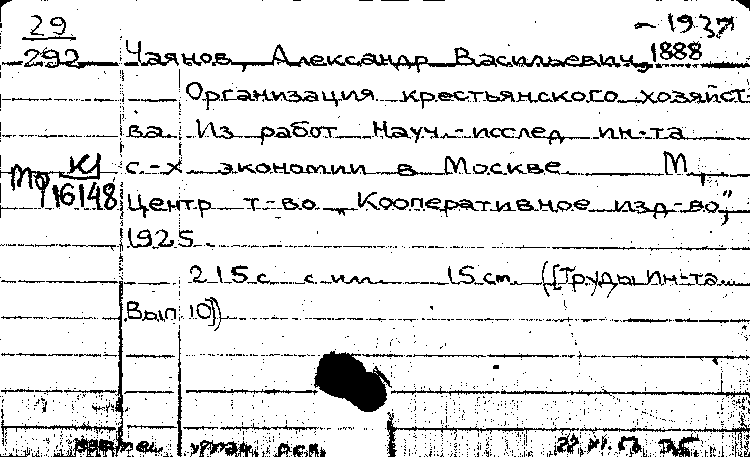 29 – 1937
292 Чаянов, Александр Васильевич, 1888
Организация крестьянского хозяйст-
ва. Из работ Науч.-исслед ин-та
с.-х. экономии в Москве М.,
Мф К1
16148
Центр т-во „Кооперативное изд-во",
1925.
215 с. с ил. 15 cm. ([Труды Ин-та.
Вып 10])